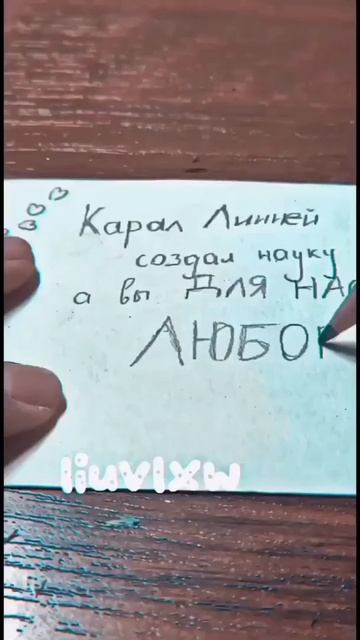 Карал Линней
создал науку
а вы ДЛЯ НАС
ЛЮБО
liuvlxw